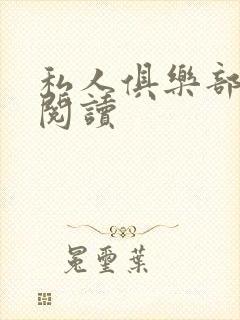 私人俱樂部
閱讀
冕璽葉